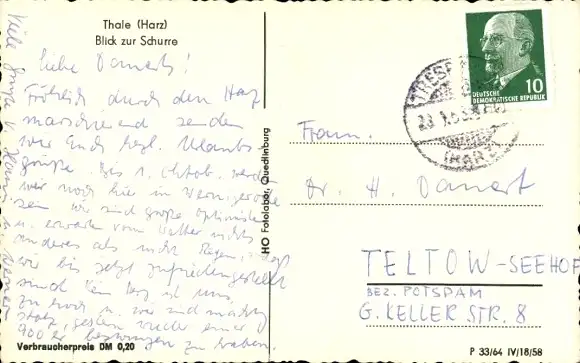 Thale (Harz)
Blick zur Schurre
Liebe Danerts!
Fröhlich durch den Harz
marschierend senden
wir Euch herzl. Urlaubs-
grüße. Bis 1. Oktob. werden
wir noch hier in Wernigerode
sein. Wir sind große Optimisten
u. erwarten vom Wetter nichts
anderes als nicht Regen,
wir bis jetzt zufriedengestellt
sind. Kein Berg ist uns
zu hoch u. wir sind mächtig
stolz, gestern wieder einen
900er bezwungen zu haben.
Viele
Verbraucherpreis DM 0,20
HO Fotolabor, Quedlinburg
DEUTSCHE
DEMOKRATISCHE REPUBLIK
10
(HARZ)
Fam.
Dr. H. Danert
TELTOW-SEEHOF
BEZ. POTSDAM
G. KELLER STR. 8
P 33/64 IV/18/58